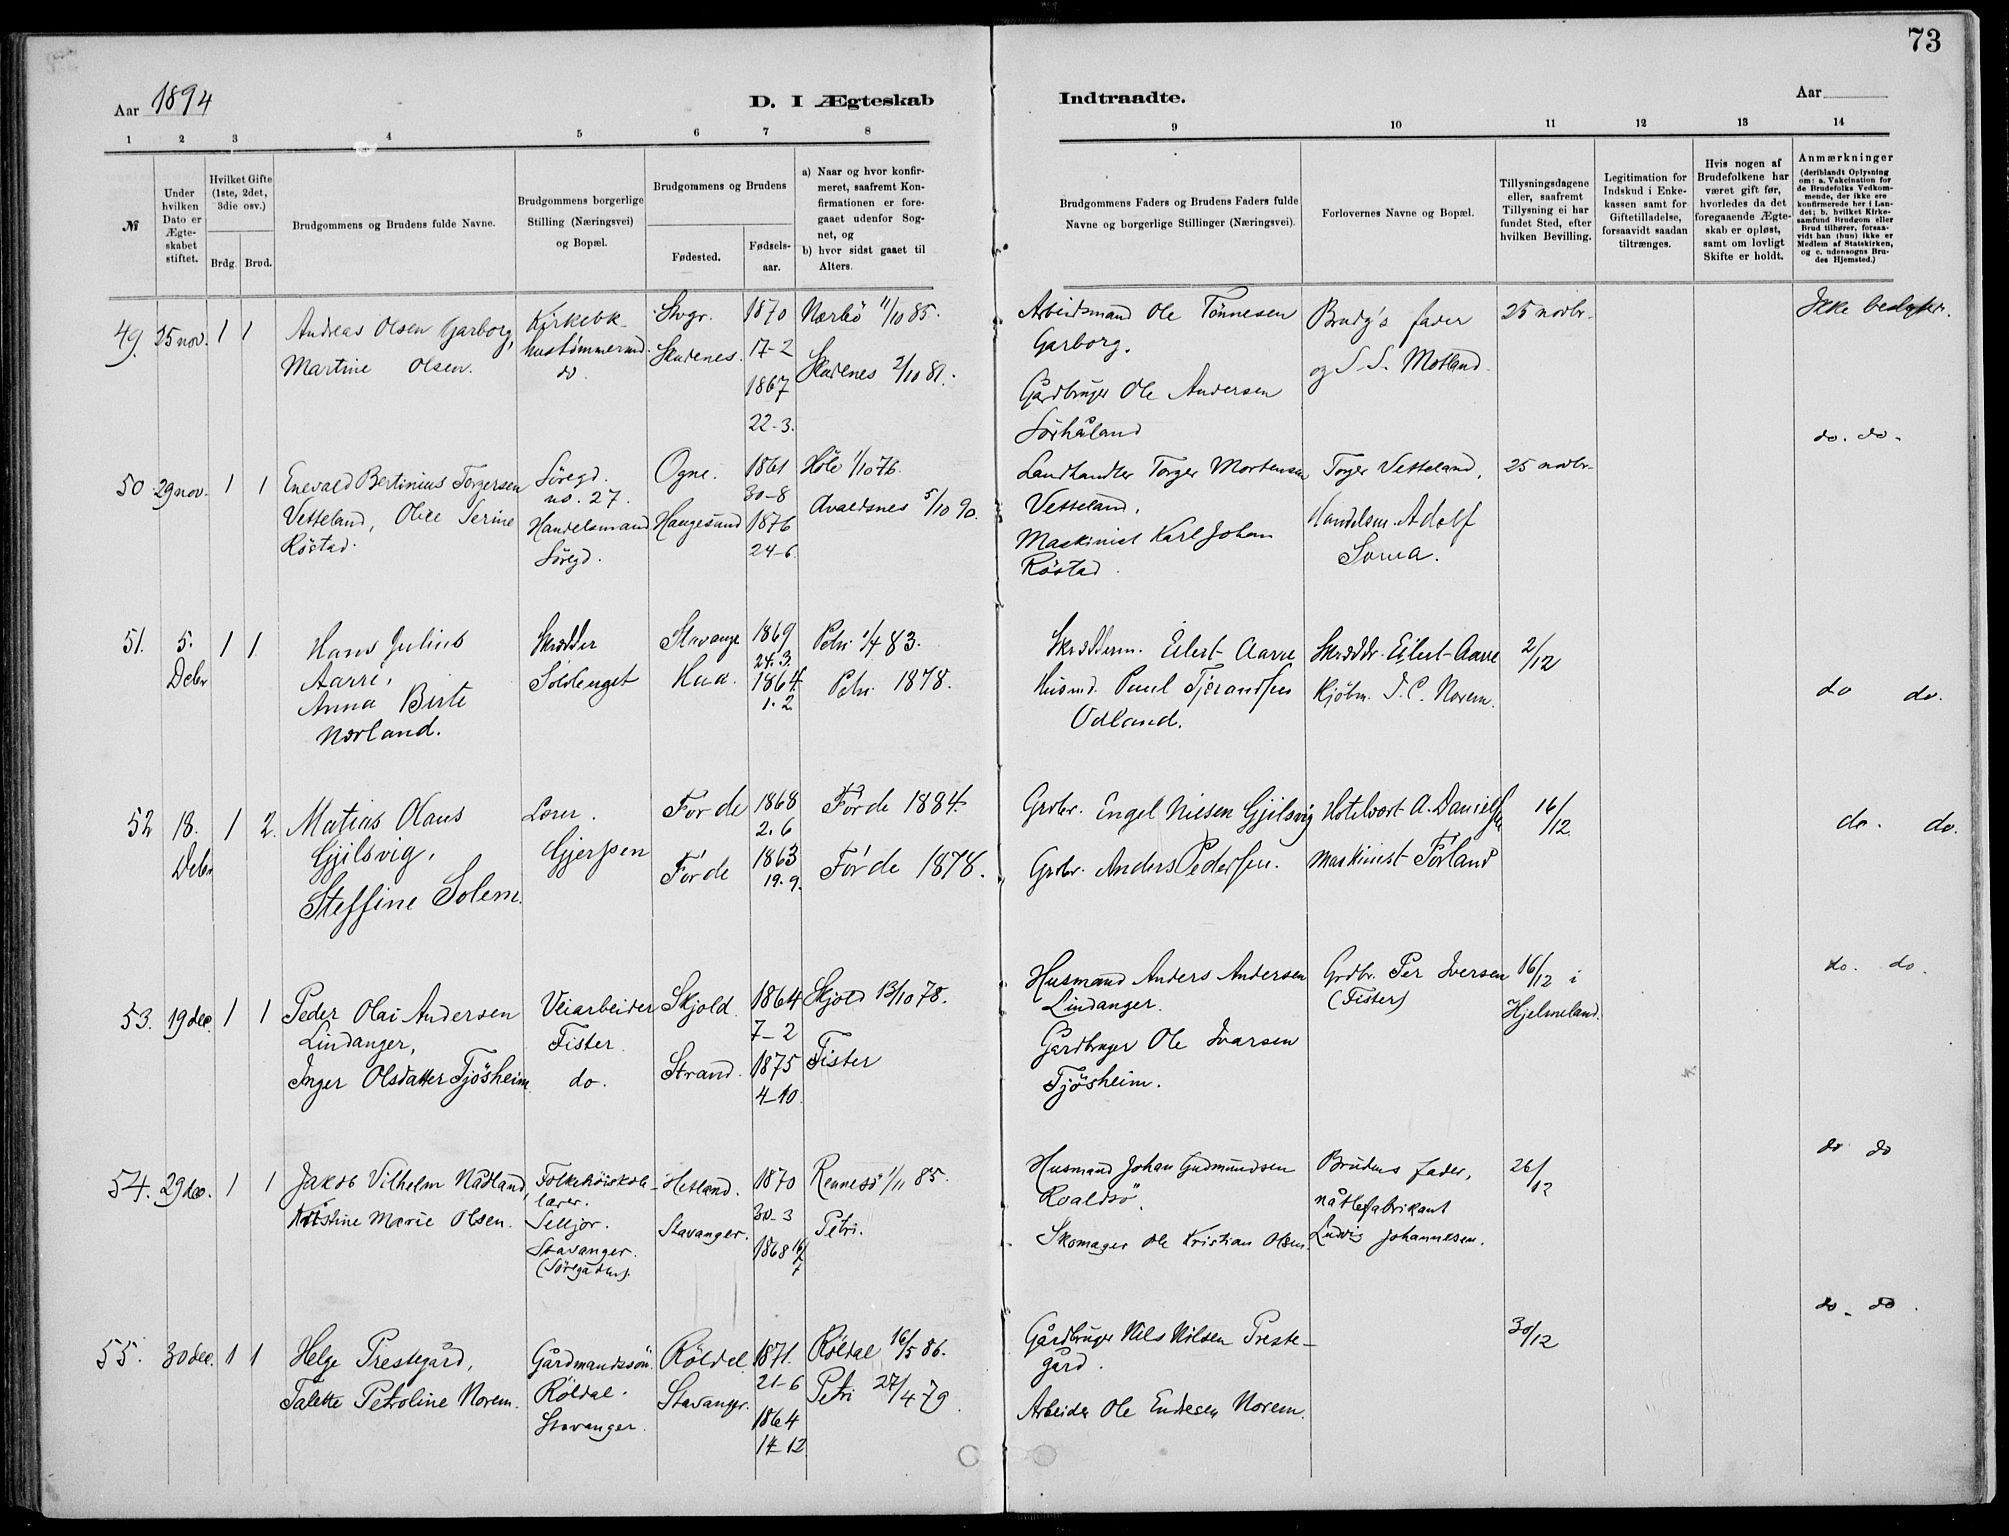 73
Aar 1894
D. I Ægteskab
Indtraadte.
Aar
1 2 3 4 5 6 7 8
9 10 11 12 13 14
№
Under hvilken Dato er Ægteskabet stiftet.
Hvilket Gifte (1ste, 2det, 3die osv.)
Brdg. Brud.
Brudgommens og Brudens fulde Navne.
Brudgommens borgerlige Stilling (Næringsvei) og Bopæl.
Brudgommens og Brudens
Fødested.
Fødselsaar.
a) Naar og hvor konfirmeret, saafremt Konfirmationen er foregaaet udenfor Sognet, og
b) hvor sidst gaaet til Alters.
Brudgommens Faders og Brudens Faders fulde Navne og borgerlige Stillinger (Næringsvei).
Forlovernes Navne og Bopæl.
Tillysningsdagene eller, saafremt Tillysning ei har fundet Sted, efter hvilken Bevilling.
Legitimation for Indskud i Enkekassen samt for Giftetilladelse, forsaavidt saadan tiltrænges.
Hvis nogen af Brudefolkene har været gift før, hvorledes da det foregaaende Ægteskab er opløst, samt om lovligt Skifte er holdt.
Anmærkninger (deriblandt Oplysning om: a. Vakcination for de Brudefolks Vedkommende, der ikke ere konfirmerede her i Landet; b. hvilket Kirkesamfund Brudgom eller Brud tilhører, forsaavidt han (hun) ikke er Medlem af Statskirken, og c. udensogns Brudes Hjemsted.)
49. 25 nov. 1 1
Andreas Olsen Garborg,
Martine Olsen.
Kirkebk.
hustømmermd.
do.
Stvgr.
Skudenes.
1870
17-2
1867
22-3.
Nærbö 11/10 85.
Skudenes 2/10 81.
Arbeidsmand Ole Tönnesen
Garborg.
Gårdbruger Ole Andersen
Sörhåland
Brudg's fader
og S. S. Motland
25 novbr.
Ikke beslægtede.
50. 29 nov. 1 1
Enevald Bertinius Torgersen
Vetteland, Olice Serine
Röstad.
Söregd.
no. 27.
Handelsmand
Söregd.
Ogne.
Haugesund
1861
30-8
1876
24-6
Höle 1/10 76.
Avaldsnes 5/10 90.
Landhandler Torger Mortensen
Vetteland,
Maskinist Karl Johan
Röstad.
Torger Vetteland,
Handelsm. Adolf
Soma.
25 novbr.
do. do.
51. 5. Decbr 1 1
Hans Julius
Aarre,
Anna Birte
Nærland.
Skrædder
Solklenget
Stavanger
Haa.
1869
24.3.
1864
1.2
Petri 1/4 83.
Petri 1878.
Skrædderm. Eilert Aarre
Husmd. Paul Tjerandsen
Odland.
Skræddr. Eilert Aarre
Kjøbm. J. C. Norem.
2/12
do do.
52 18. Decbr 1 2.
Matias Klaus
Gjilsvig,
Steffine Solem.
Gjerpen
Förde
Förde
1868
2.6
1863
19.9.
Förde 1884.
Förde 1878.
Grdbr. Engel Nielsen Gjilsvig
Grdbr. Anders Pedersen.
Hotelvært A. Danielsen
Maskinist Förland
16/12.
do. do.
53. 19 dec. 1 1
Peder Olai Andersen
Lindanger,
Inger Olsdatter Tjösheim
Veiarbeider
Fister
do.
Skjold.
Strand.
1864
7-2
1875
4-10.
Skjold 13/10 78.
Fister
Husmand Anders Andersen
Lindanger.
Gårdbruger Ole Ivarsen
Tjösheim.
Grdbr. Per Iversen
(Fister)
16/12 i
Hjelmeland.
do. do.
54. 29 dec. 1 1
Jakob Vilhelm Nådland,
Kristine Marie Olsen.
Folkehöiskole-
lærer.
Selljor.
Stavanger.
(Söregaden).
Hetland.
Stavanger.
1870
30-3
1868 16/7
Rennesö 1/11 85.
Petri.
Husmand Johan Gudmundsen
Roaldsö.
Skomager Ole Kristian Olsen
Brudens fader,
nåtlefabrikant
Ludvig Johannesen.
26/12
do do
55. 30 dec. 1 1
Helge Prestegård,
Talette Petroline Norem.
Gårdmandssön
Röldal.
Stavanger.
Röldal
Stavanger.
1871.
21-6
1864
14-12
Röldal 16/5 86.
Petri 27/4 79.
Gårdbruger Nils Nilsen Preste-
gård.
Arbeider Ole Endresen Norem.
30/12
do - do.